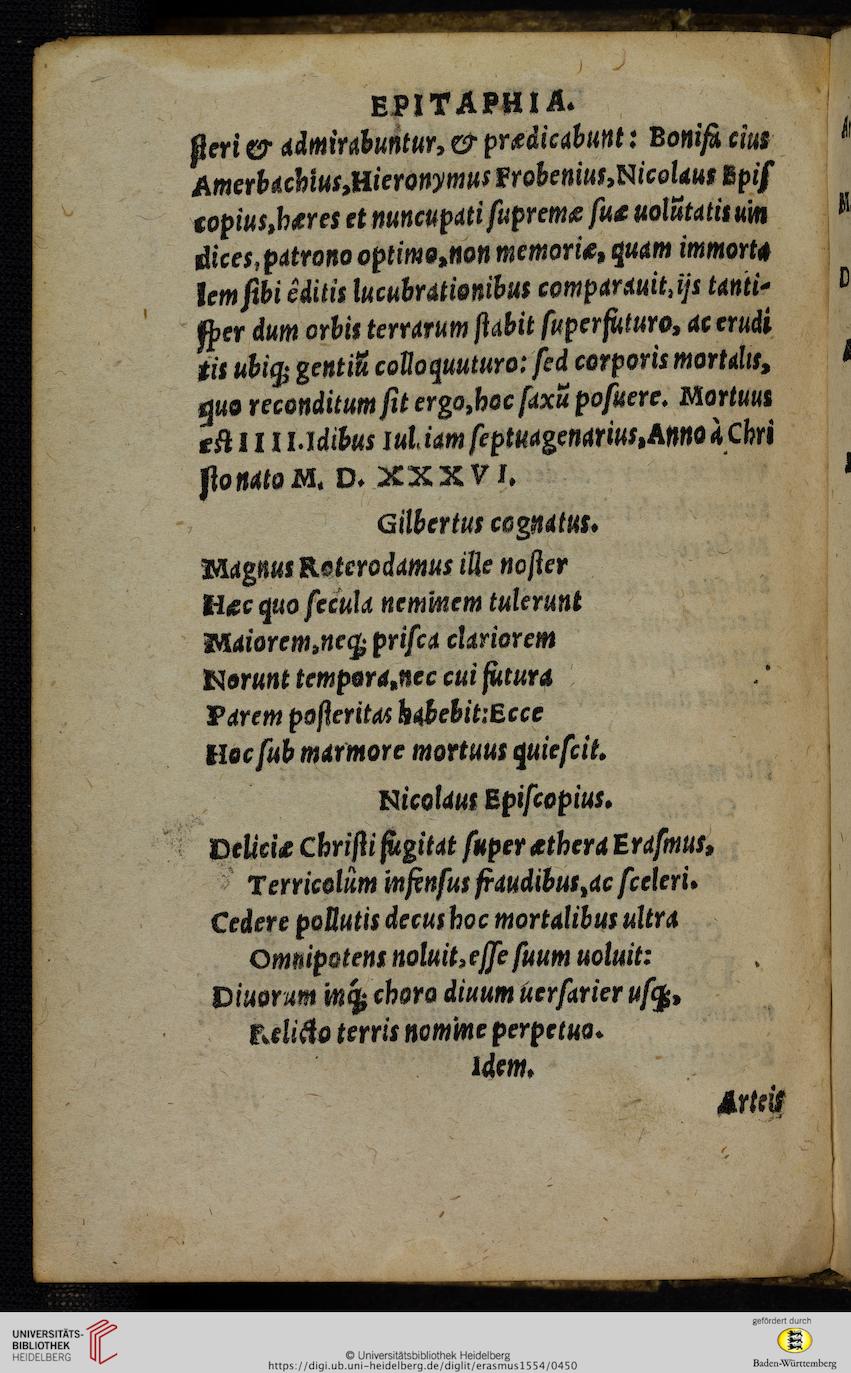 EPITAPHIA.
ſteri & admirabuntur, & prædicabunt: Bonifa cius
Amerbachius,Hieronymus Frobenius,Nicolaus Epiſ
copius,hæres et nuncupati ſupremæ ſuæ uolũtatis uin
dices, patrono optimo,non memoriæ, quam immorta
lem ſibi êditis lucubrationibus comparauit, ijs tanti-
ſper dum orbis terrarum ſtabit ſuperfuturo, ac erudi
tis ubiq; gentiũ colloquuturo: ſed corporis mortalis,
quo reconditum ſit ergo,hoc ſaxũ poſuere. Mortuus
eſt IIII.Idibus Iul. iam ſeptuagenarius,Anno à Chri
ſto nato M. D. XXXVI.
Gilbertus cognatus.
Magnus Roterodamus ille noſter
Hæc quo ſecula neminem tulerunt
Maiorem,neq; priſca clariorem
Norunt tempora,nec cui futura
Parem poſteritas habebit:Ecce
Hoc ſub marmore mortuus quieſcit.
Nicolaus Epiſcopius.
Deliciæ Chriſti fugitat ſuper æthera Eraſmus,
Terricolûm infenſus fraudibus,ac ſceleri.
Cedere pollutis decus hoc mortalibus ultra
Omnipotens noluit,eſſe ſuum uoluit:
Diuorum inq́; choro diuum uerſarier uſq;,
Relicto terris nomine perpetuo.
Idem.
Arteis
UNIVERSITÄTS-
BIBLIOTHEK
HEIDELBERG
© Universitätsbibliothek Heidelberg
https://digi.ub.uni-heidelberg.de/diglit/erasmus1554/0450
gefördert durch
Baden-Württemberg